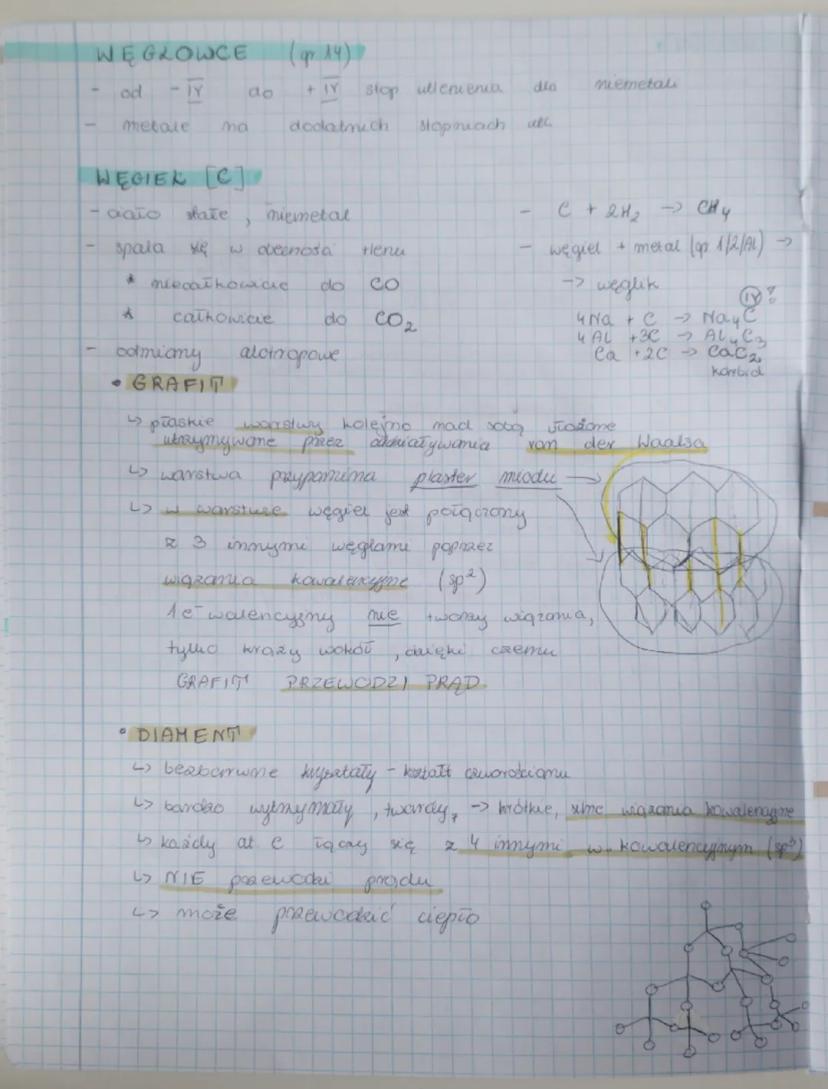 WĘGLOWCE (gr 14)
- od -IV do +IV stop utlenienia dla niemetali
- metale na dodatnich stopniach utl.
WĘGIEL [C]
- ciało stałe, niemetal
- spala się w obecności tlenu
* niecałkowicie do CO
* całkowicie do CO₂
- odmiany alotropowe
- C + 2H₂ → CH₄
- węgiel + metal (gr 1/2/Al) →
→ węglik
(IV)?
4Na + C → Na₄C
4Al + 3C → Al₄C₃
Ca + 2C → CaC₂
karbid
• GRAFIT
↳ płaskie warstwy kolejno nad sobą ułożone
utrzymywane przez oddziaływania van der Waalsa
↳ warstwa przypomina plaster miodu →
↳ w warstwie węgiel jest połączony
z 3 innymi węglami poprzez
wiązania kowalencyjne (sp²)
1 e⁻ walencyjny nie tworzy wiązania,
tylko krąży wokół, dzięki czemu
GRAFIT PRZEWODZI PRĄD
• DIAMENT
↳ bezbarwne kryształy - kształt czworościanu
↳ bardzo wytrzymały, twardy, → krótkie, silne wiązania kowalencyjne
↳ każdy at C łączy się z 4 innymi w. kowalencyjnym (sp³)
↳ NIE przewodzi prądu
↳ może przewodzić ciepło